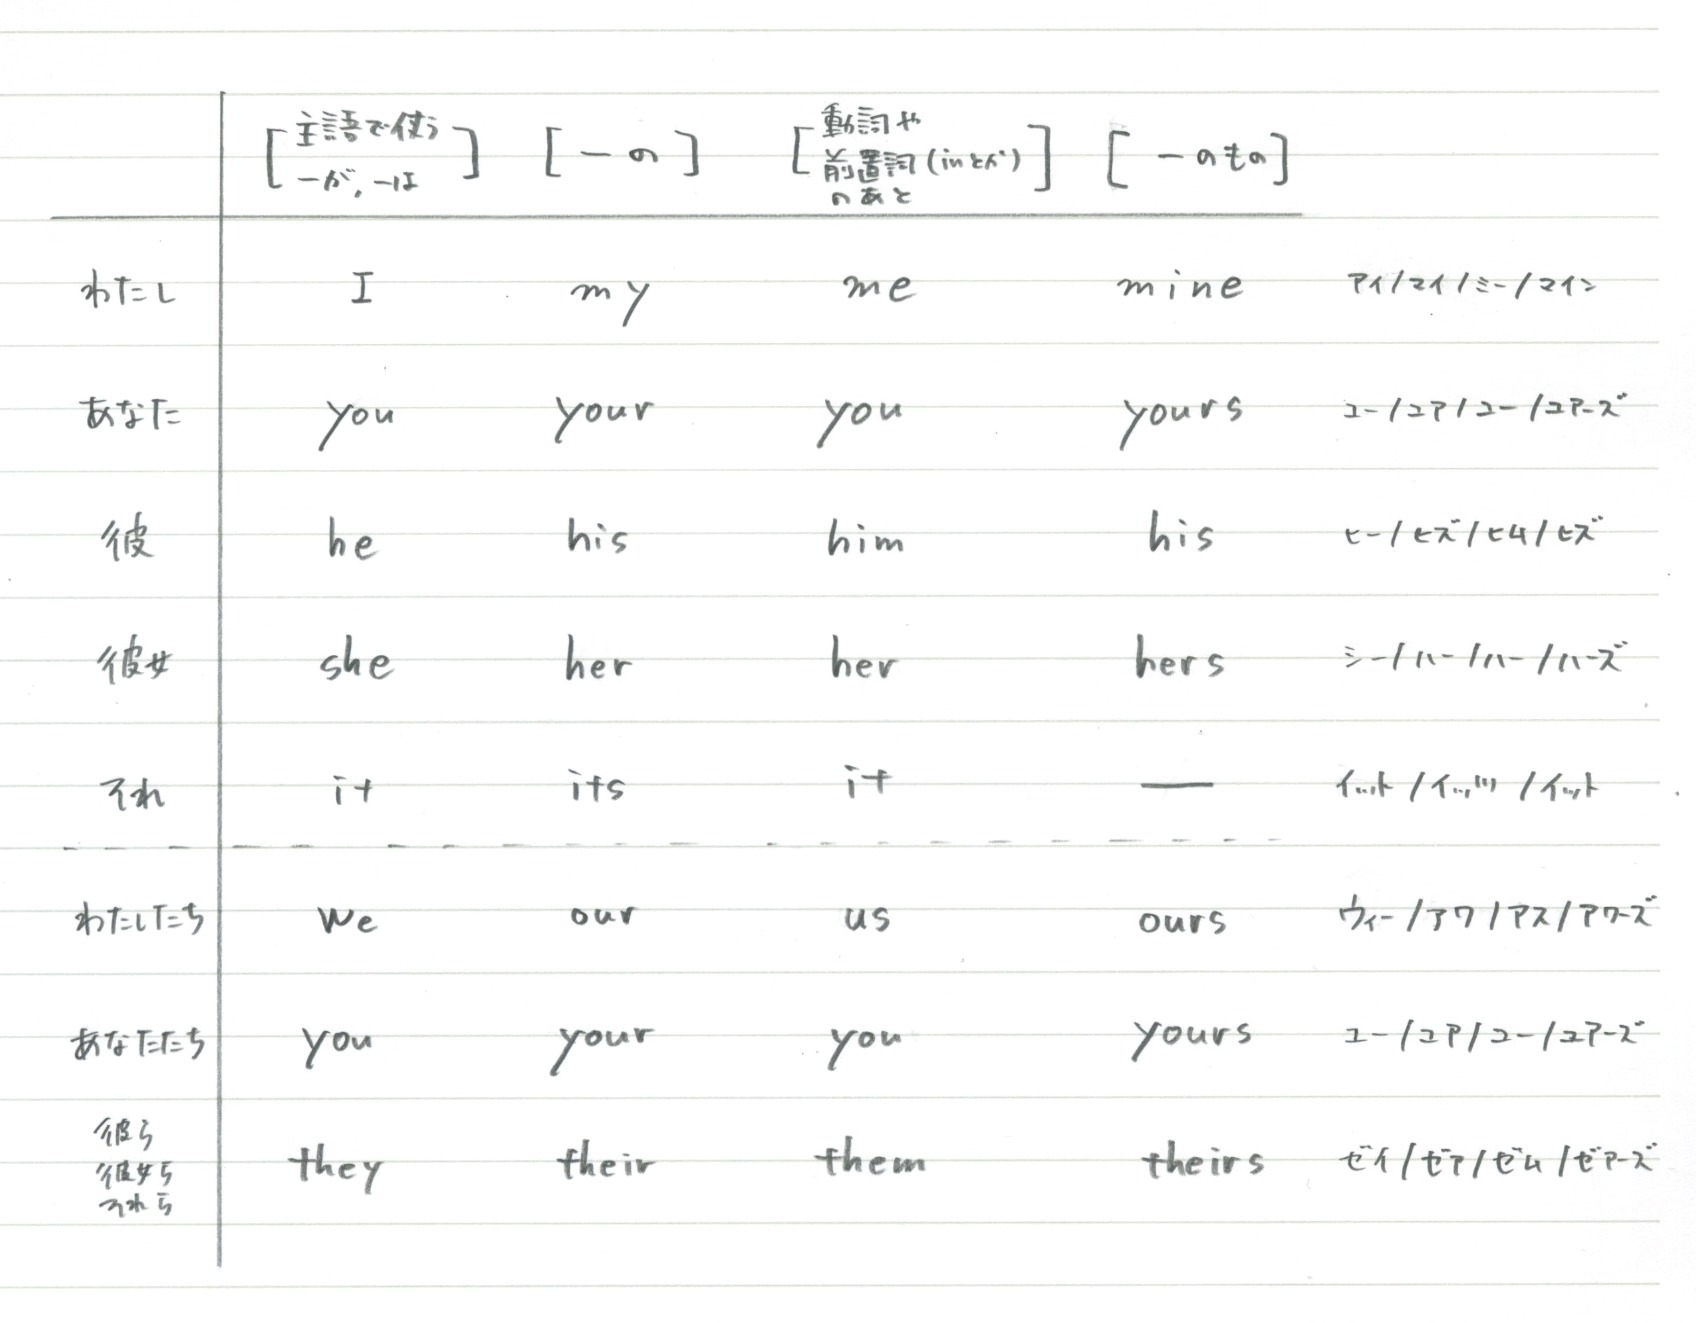 [主語で使う ー が、ー は] [ー の] [動詞や 前置詞(inとか) のあと] [ー のもの]
わたし I my me mine アイ/マイ/ミー/マイン
あなた you your you yours ユー/ユア/ユー/ユアーズ
彼 he his him his ヒー/ヒズ/ヒム/ヒズ
彼女 she her her hers シー/ハー/ハー/ハーズ
それ it its it ー イット/イッツ/イット
わたしたち we our us ours ウィー/アワ/アス/アワーズ
あなたたち you your you yours ユー/ユア/ユー/ユアーズ
彼ら 彼女ら それら they their them theirs ゼイ/ゼア/ゼム/ゼアーズ